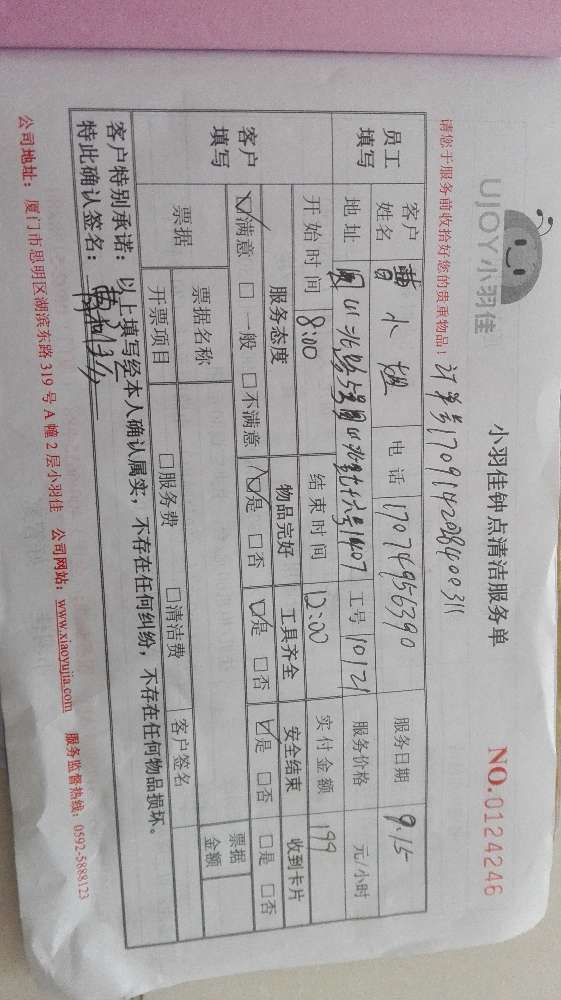 UJOY小羽佳
小羽佳钟点清洁服务单
NO.0124246
请您于服务前收拾好您的贵重物品!
订单号170914208400311
员工填写 客户姓名 曹小姐 电话 17074956390 服务日期 9.15
地址 工号 10121 服务价格 元/小时
开始时间 8:00 结束时间 12:00 实付金额 199
客户填写 服务态度 物品完好 工具齐全 安全结束 收到卡片
☑满意 □一般 □不满意 ☑是 □否 ☑是 □否 ☑是 □否 □是 □否
票据 票据名称 票据金额
开票项目 □服务费 □清洁费 客户签名
客户特别承诺:以上填写经本人确认属实,不存在任何纠纷,不存在任何物品损坏。
特此确认签名:
公司地址:厦门市思明区湖滨东路319号A幢2层小羽佳 公司网站:www.xiaoyujia.com 服务监督热线:0592-5888123